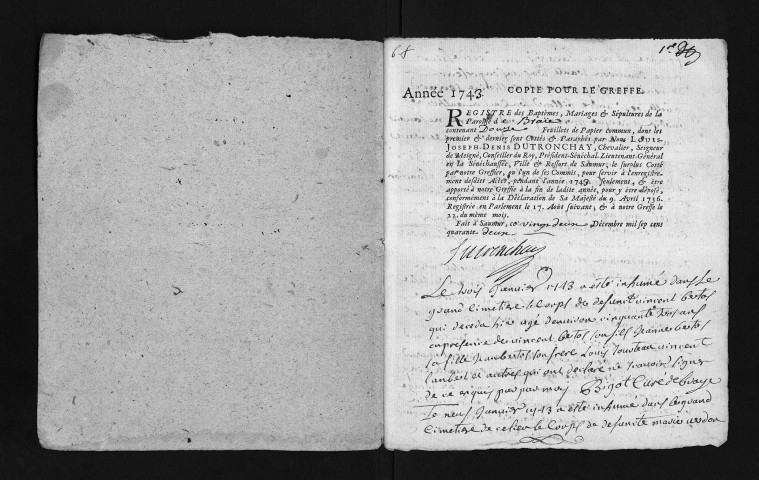 68
1re
Année 1743 COPIE POUR LE GREFFE.
REGISTRE des Baptêmes, Mariages & Sépultures de la
Paroisse de Braie
contenant Douze Feuillets de Papier commun, dont les
premier & dernier sont Cottés & Paraphés par Nous LOUIS-
JOSEPH-DENIS DUTRONCHAY, Chevalier, Seigneur
de Méigné, Conseiller du Roy, Président-Sénéchal, Lieutenant-Général
en la Sénéchaussée, Ville & Ressort de Saumur, le surplus Cotté
par notre Greffier, ou l'un de ses Commis, pour servir à l'enregistre-
ment desdits Actes, pendant l'année 1743 Seulement, & être
apporté à notre Greffe à la fin de ladite année, pour y être déposé,
conformément à la Déclaration de Sa Majesté du 9. Avril 1736.
Registrée en Parlement le 17. Août suivant, & à notre Greffe le
22. du même mois.
Fait à Saumur, ce vingt deux Décembre mil sep cens
quarante deux
Dutronchay
Le trois Janvier 1743 a esté inhumé dans le
grand cimetiere le Corps de defunt vincent bertos
qui deceda hier agé denviron cinquante ans
en presence de vincent bertos son fils Jeanne bertos
sa fille Jean bertos son frere Louis vincent
lambert et autres qui ont declaré ne scavoir signer
de ce enquis par moy Bigot Curé de braye
Le neuf Janvier 1743 a esté inhumé dans le grand
Cimetiere de ce lieu le Corps de defunte marie